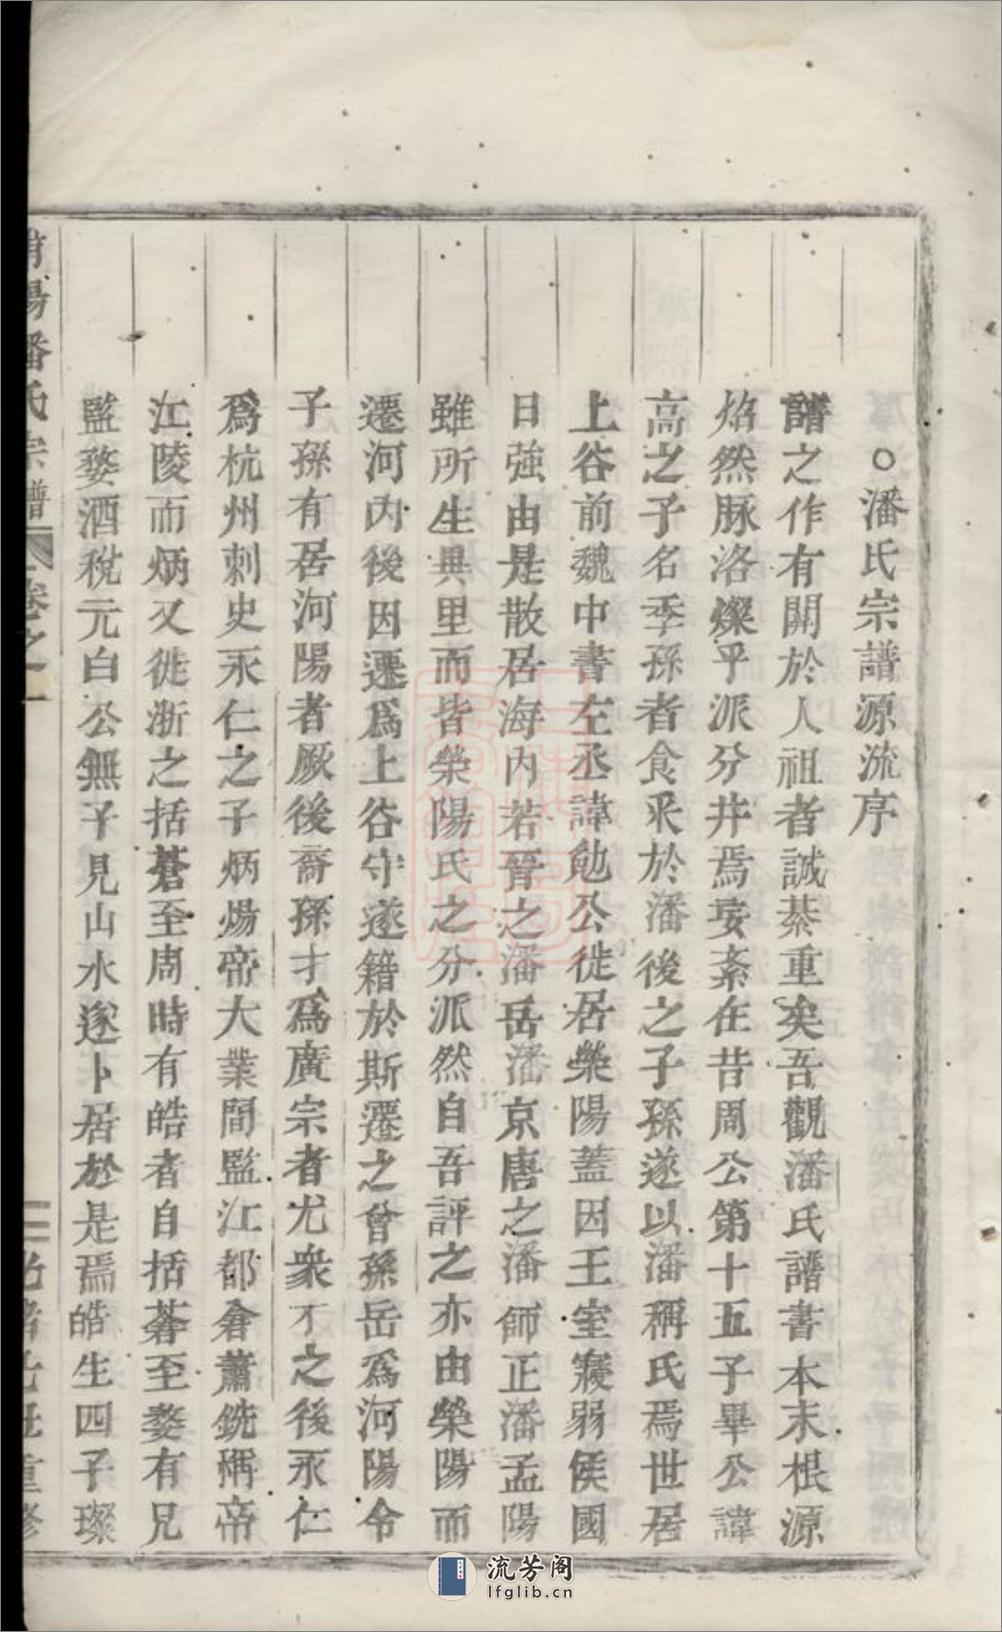 ○潘氏宗譜源流序
譜之作有關於人祖者誠綦重矣吾觀潘氏譜書本末根源
焰然脉洛燦乎派分井焉妄紊在昔周公第十五子畢公諱
高之子名季孫者食采於潘後之子孫遂以潘稱氏焉世居
上谷前魏中書左丞諱勉公徙居榮陽蓋因王室寢弱侯國
日強由是散居海内若晉之潘岳潘京唐之潘師正潘孟陽
雖所生異里而皆榮陽氏之分派然自吾評之亦由榮陽而
遷河内後因遷爲上谷守遂籍於斯遷之曾孫岳爲河陽令
子孫有居河陽者厥後裔孫才爲廣宗者尤衆才之後永仁
爲杭州刺史永仁之子炳煬帝大業間監江都倉蕭銑稱帝
江陵而炳又徙浙之括蒼至周時有皓者自括蒼至婺有兄
監婺酒稅元白公無子見山水遂卜居於是焉皓生四子璨
陽潘氏宗譜 卷之一
重修
流芳阁
lfglib.cn